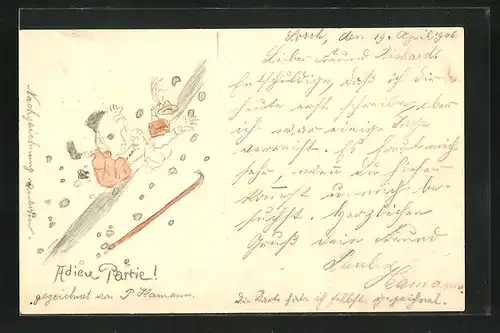 Lorch, den 19. April 1906
Lieber Freund Richard!
Entschuldige, daß ich dir
heute erst schreibe, aber
ich war einige Tage
verreist. Es freut mich
sehr, wenn du hieher
kommst u. mich be-
suchst. Herzlichen
Gruß dein Freund
Paul
Hamann
Die Karte habe ich selbst gezeichnet.
Adieu Partie!
gezeichnet von P. Hamann.
Nachzeichnung